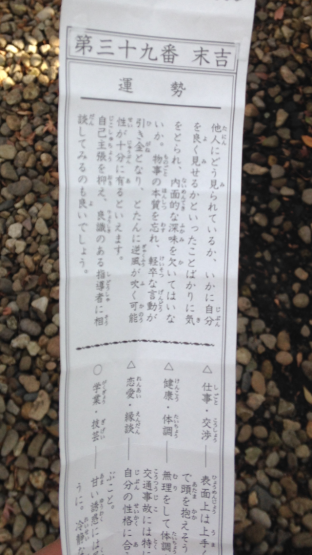 第三十九番 末吉
運勢
他人にどう見られているか、いかに自分
を良く見せるかといったことばかりに気
をとられ、内面的な深味を欠いてはいな
いか。物事の本質を忘れ、軽卒な言動が
引き金となり、とたんに逆風が吹く可能
性が十分に有るといえます。
自己主張を抑え、良識のある指導者に相
談してみるのも良いでしょう。
△仕事・交渉
表面上は上手
で頭を抱えそう
△健康・体調
無理をして体調
交通事故には特に
△恋愛・縁談
自分の性格に合
ぶこと。
○学業・技芸
甘い誘惑には
うに。冷静な